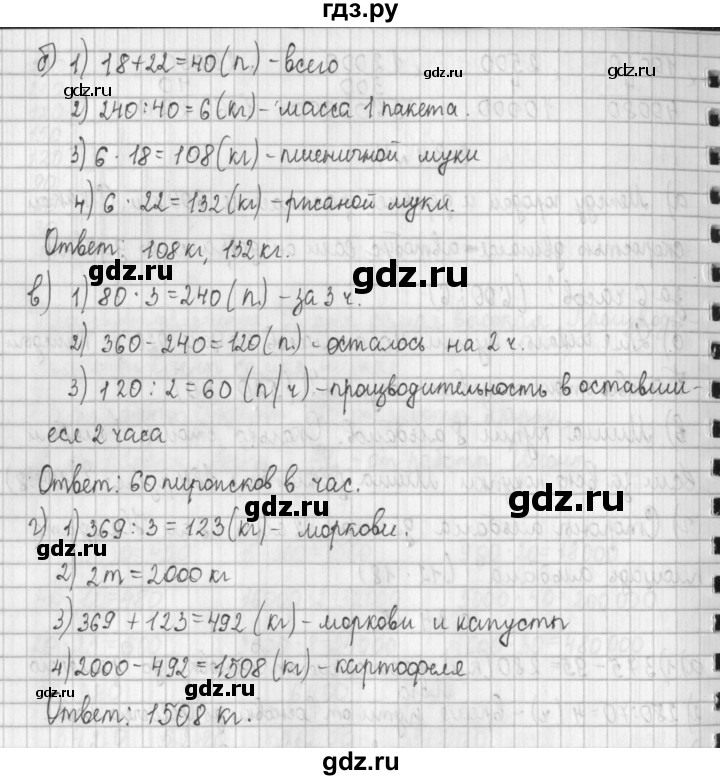 гдз.ру
б) 1) 18+22=40(п.) - всего
2) 240:40=6(кг) - масса 1 пакета.
3) 6 · 18=108(кг) - пшеничной муки
4) 6 · 22=132(кг) - рисаной муки.
Ответ: 108 кг, 132 кг.
в) 1) 80 · 3=240(п.) - за 3 ч.
2) 360-240=120(п.) - осталось на 2 ч.
3) 120 : 2=60 (п/ч) - производительность в оставши-
еся 2 часа
Ответ: 60 пирожков в час.
г) 1) 369 : 3 = 123(кг) - моркови.
2) 2т=2000 кг
3) 369 + 123=492 (кг) - моркови и капусты
4) 2000-492=1508(кг) - картофеля
Ответ: 1508 кг.
gdz.ru
gdz.ru
gdz.ru
gdz.ru
gdz.ru
gdz.ru
gdz.ru
gdz.ru
gdz.ru
gdz.ru
gdz.ru
gdz.ru
gdz.ru